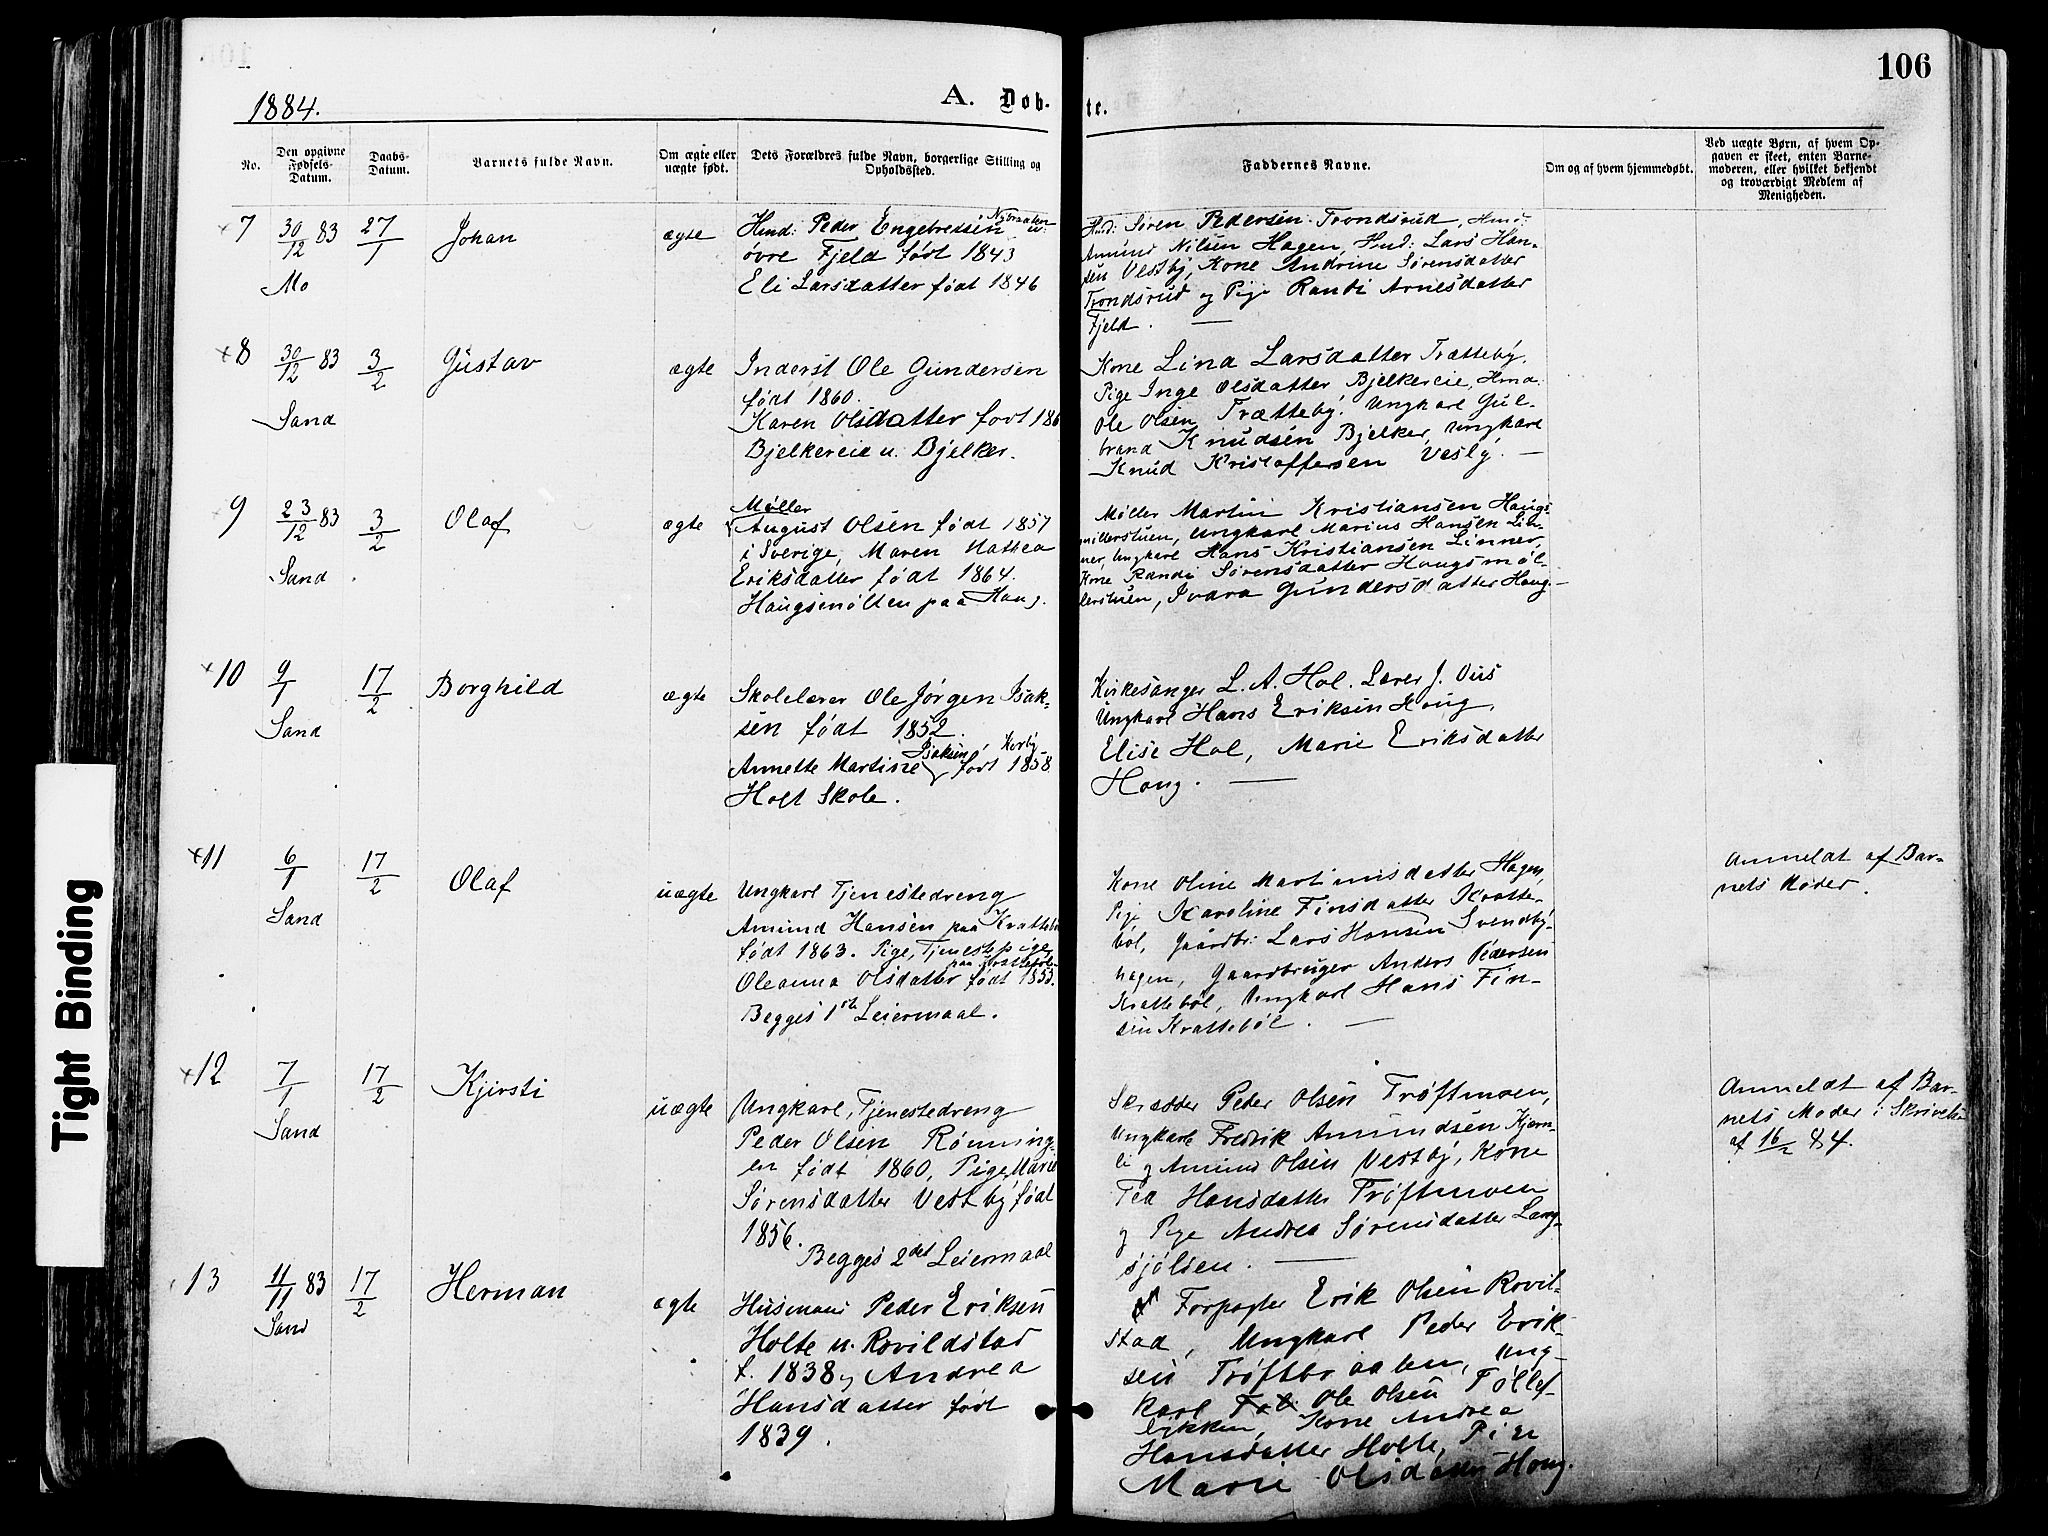 106
1884.
A. Døb-
te.
No.
Den opgivne
Fødsels-
Datum.
Daabs-
Datum.
Barnets fulde Navn.
Om ægte eller
uægte født.
Dets Forældres fulde Navn, borgerlige Stilling og
Opholdssted.
Faddernes Navne.
Om og af hvem hjemmedøbt.
Ved uægte Børn, af hvem Op-
gaven er skeet, enten Barne-
moderen, eller hvilket bekjendt
og troværdigt Medlem af
Menigheden.
7
30/12 83
27/1
Mo
Johan
ægte
Hmd: Peder Engebretsen
øvre Fjeld født 1843
Eli Larsdatter født 1846
Hmd: Søren Pedersen Trondsrud, Hmd
Amund Nilsen Hagen, Hmd: Lars Han-
sen Vestby, Kone Andrine Sørensdatter
Trondsrud og Pige Randi Arnesdatter
Fjeld. —
×8
30/12 83
3/2
Sand
Gustav
ægte
Inderst Ole Gundersen
født 1860.
Karen Olsdatter født 186
Bjelkereie u. Bjelker.
Kone Lina Larsdatter Trætteby.
Pige Inge Olsdatter Bjelkereie, Hmd:
Ole Olsen Trætteby. Ungkarl Gul-
brand Knudsen Bjelker, Ungkarl
Knud Kristoffersen Vesly. —
9
23/12 83
3/2
Sand
Olaf
ægte
Møller
August Olsen født 1857
i Sverige, Maren Mathea
Eriksdatter født 1864.
Haugsmøllen paa Haug.
Møller Martin Kristiansen Haugs-
møllerstuen, Ungkarl Marius Hansen Lin-
ner, Ungkarl Hans Kristiansen Linner,
Kone Randi Sørensdatter Haugsmøl-
lerstuen, Ivara Gundersdatter Haug. —
×10
9/1
17/2
Sand
Borghild
ægte
Skolelærer Ole Jørgen Isak-
sen født 1852.
Isaksen
Annette Martine født 1858
Holt Skole.
Kirkesanger L. A. Hol. Lærer J. Ous
Ungkarl Hans Eriksen Haug,
Elise Hol, Marie Eriksdatter
Haug. —
×11
6/1
17/2
Sand
Olaf
uægte
Ungkarl Tjenestedreng
Amund Hansen paa Krattebøl
født 1863. Pige, Tjenestepige
paa Krattebøl
Oleanna Olsdatter født 1855.
Begges 1ste Leiermaal.
Kone Oline Martinusdatter Hagen,
Pige Karoline Finsdatter Kratte-
bøl, Gaardbr: Lars Hansen Svendby-
hagen, Gaardbruger Anders Pedersen
Krattebøl, Ungkarl Hans Fin-
sen Krattebøl. —
Anmeldt af Bar-
nets Moder.
×12
7/1
17/2
Sand
Kjirsti
uægte
Ungkarl, Tjenestedreng
Peder Olsen Rønning-
en født 1860, Pige Marie
Sørensdatter Vestby født
1856.
Begges 2det Leiermaal
Skrædder Peder Olsen Trøftmoen,
Ungkarl Fredrik Amundsen Kjern-
li og Amund Olsen Vestby, Kone
Pea Hansdatter Trøftmoen
og Pige Andrea Sørensdatter Lang-
sjølien. —
Anmeldt af Bar-
nets Moder i Skrivelse
af 16/2 84.
13
11/11 83
17/2
Sand
Herman
ægte
Husmand Peder Eriksen
Holte u. Rovildstad
f. 1838 og Andrea
Hansdatter født
1839.
Forpagter Erik Olsen Rovil-
stad, Ungkarl Peder Erik-
sen Trøftbraaten, Ung-
karl Ole Olsen Tøllef-
løkken, Kone Andrea
Hansdatter Holte, Pige
Marie Olsdatter Haug.
Tight Binding